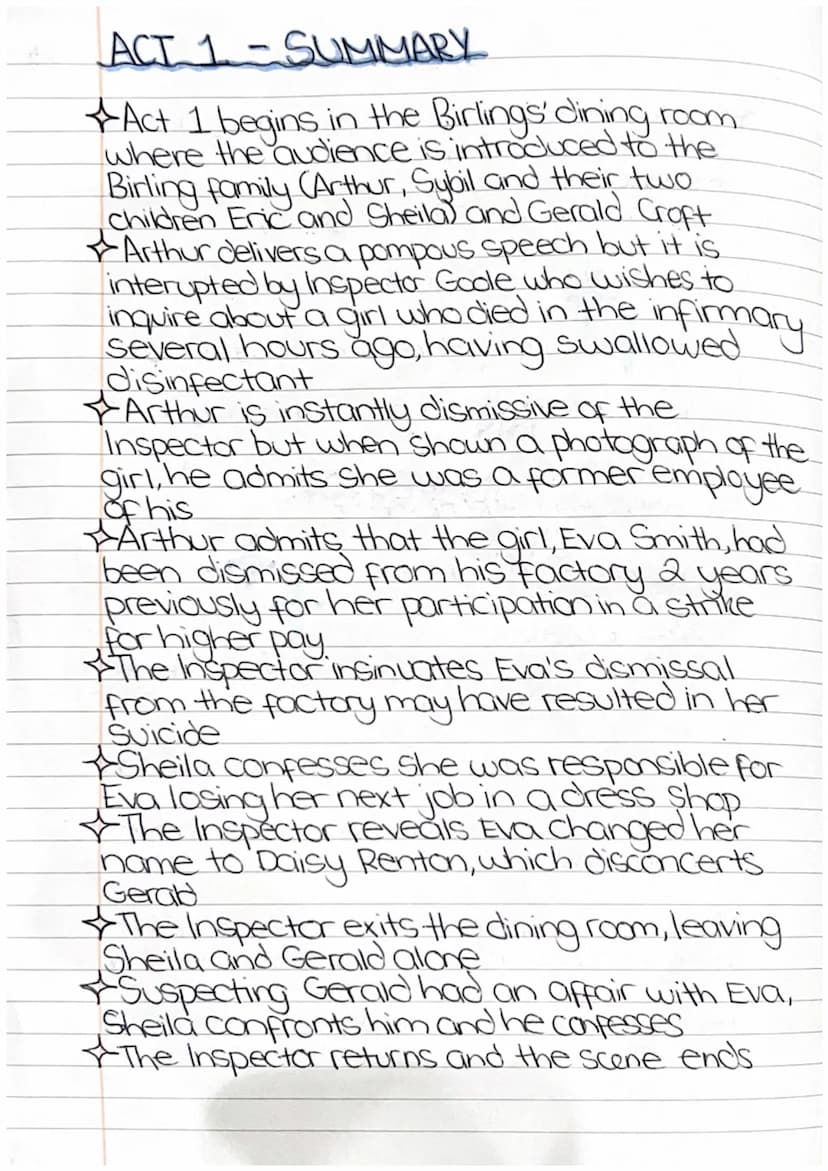 ACT 1 - SUMMARY
✧Act 1 begins in the Birlings' dining room
where the audience is introduced to the
Birling family (Arthur, Sybil and their two
children Eric and Sheila) and Gerald Croft
✧Arthur delivers a pompous speech but it is
interupted by Inspector Goole who wishes to
inquire about a girl who died in the infirmary
several hours ago, having swallowed
disinfectant
✧Arthur is instantly dismissive of the
Inspector but when shown a photograph of the
girl, he admits she was a former employee
of his
✧Arthur admits that the girl, Eva Smith, had
been dismissed from his factory 2 years
previously for her participation in a strike
for higher pay
✧The Inspector insinuates Eva's dismissal
from the factory may have resulted in her
suicide
✧Sheila confesses she was responsible for
Eva losing her next job in a dress shop
✧The Inspector reveals Eva changed her
name to Daisy Renton, which disconcerts
Gerald
✧The Inspector exits the dining room, leaving
Sheila and Gerald alone
✧Suspecting Gerald had an affair with Eva,
Sheila confronts him and he confesses
✧The Inspector returns and the scene ends